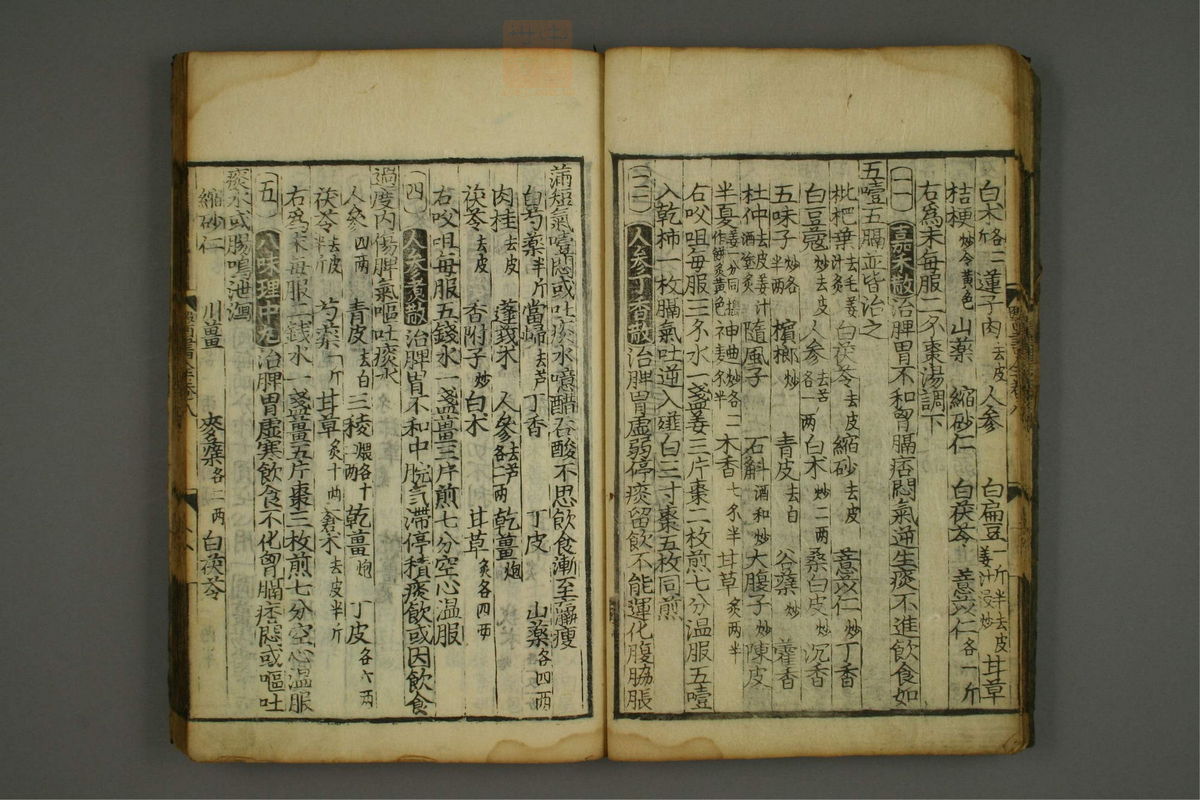 白朮各二斤 蓮子肉去皮 人参 白扁豆一斤半去皮姜汁浸炒 甘草
桔梗炒令黄色 山藥 縮砂仁 白茯苓 薏苡仁各一斤
右為末每服二夕棗湯調下
(二)嘉禾散治脾胃不和胷膈痞悶氣逆生痰不進飲食如
五噎五膈並皆治之
枇杷葉去毛姜汁炙 白茯苓去皮 縮砂去皮 薏苡仁炒 丁香
白豆蔻炒去皮 人参去芦各一兩 白朮炒二兩 桑白皮炒 沉香
五味子炒各半 檳榔炒 青皮去白 谷蘗炒 藿香
杜仲去皮姜汁酒塗炙 隨風子 石斛酒和炒 大腹子炒 陳皮
半夏姜一分同搗作餅炙黄色 神曲炒各二夕半 木香七夕半 甘草炙兩半
右㕮咀每服三夕水一盞姜三片棗二枚煎七分温服五噎
入乾柿一枚膈氣吐逆入薤白三寸棗五枚同煎
(三)人参丁香散治脾胃虚弱停痰留飲不能運化腹脇脹
滿短氣噎悶或吐痰水噫醋吞酸不思飲食漸至羸瘦
白芍藥半斤 當歸去芦 丁香 丁皮 山藥各四兩
肉桂去皮 蓬莪朮 人參去芦各二兩 乾薑炮
茯苓去皮 香附子炒 白朮 甘草炙各四兩
右㕮咀每服五錢水一盞薑三片煎七分空心温服
(四)人參煮散治脾胃不和中脘氣滯停積痰飲或因飲食
過度内傷脾氣嘔吐痰水
人參四兩 青皮去白 三稜煨各十兩 乾薑炮 丁皮各六兩
茯苓去皮半斤 芍藥一斤 甘草炙十兩 蒼朮去皮半斤
右為末每服二錢水一盞薑五片棗三枚煎七分空心温服
(五)八味理中丸治脾胃虚寒飲食不化胷膈痞悶或嘔吐
痰水或腸鳴泄瀉
縮砂仁 川薑 麥蘗各二兩 白茯苓